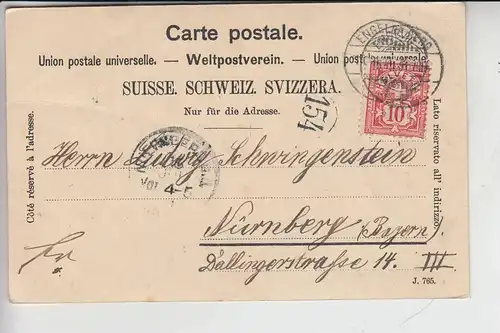 Carte postale.
Union postale universelle. — Weltpostverein. — Union postale universelle
SUISSE. SCHWEIZ. SVIZZERA.
Nur für die Adresse.
ENGELBERG
10
154
Côté réservé à l'adresse.
Lato riservato all' indirizzo.
NÜRNBERG
4-5
Herrn Ludwig Schwingenstein
Nürnberg (Bayern).
Dallingerstrasse 14. III
J. 765.